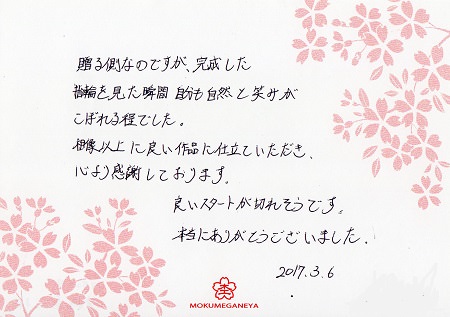 贈る側なのですが、完成した
指輪を見た瞬間 自分も自然と笑みが
こぼれる程でした。
想像以上に良い作品に仕立ていただき、
心より感謝しております。
良いスタートが切れそうです。
本当にありがとうございました。
2017.3.6
MOKUMEGANEYA